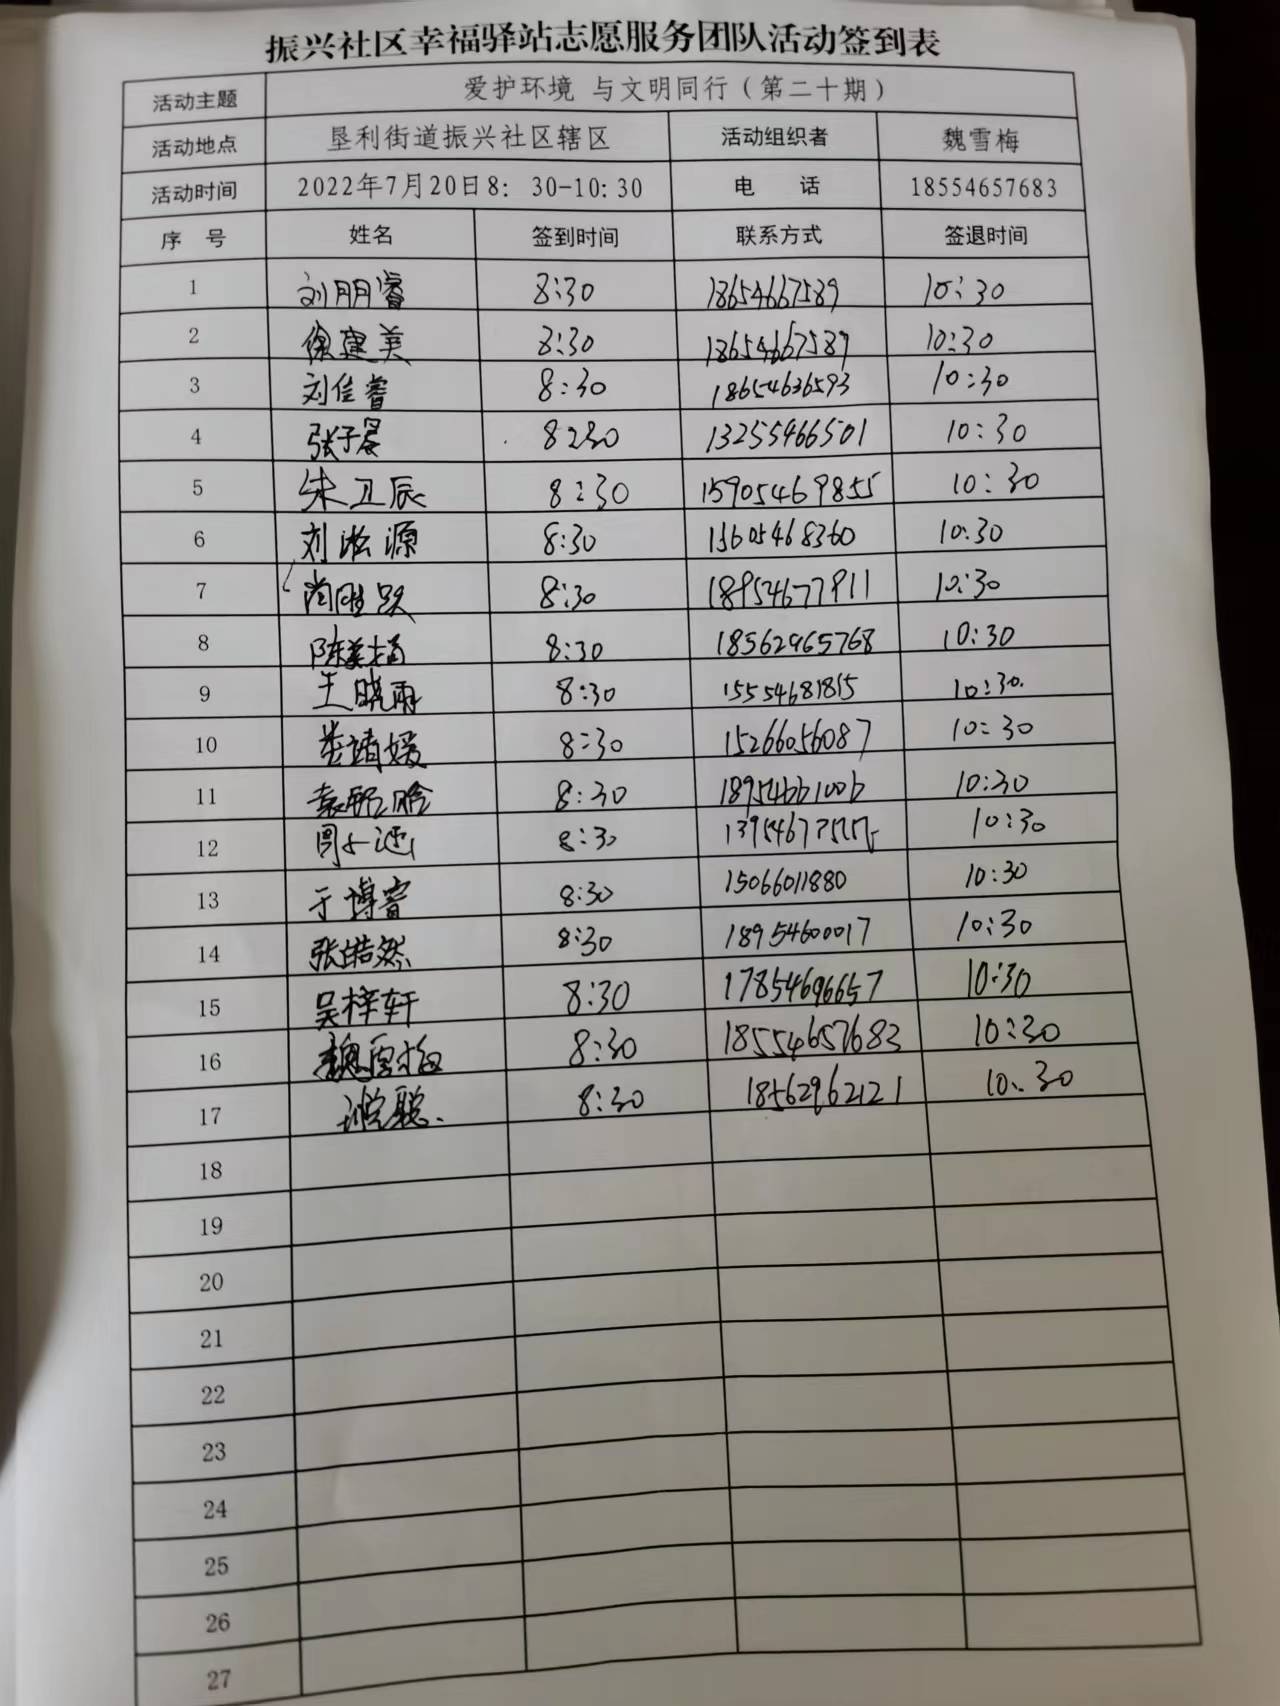 振兴社区幸福驿站志愿服务团队活动签到表
活动主题 爱护环境 与文明同行（第二十期）
活动地点 垦利街道振兴社区辖区 活动组织者 魏雪梅
活动时间 2022年7月20日8：30-10:30 电 话 18554657683
序 号 姓名 签到时间 联系方式 签退时间
1 刘朋睿 8:30 18654667589 10:30
2 徐建美 8:30 18654667589 10:30
3 刘佳睿 8:30 18654636593 10:30
4 张子晨 8:30 13255466501 10:30
5 宋卫辰 8:30 15905469855 10:30
6 刘淞源 8:30 15605468360 10:30
7 8:30 18954677911 10:30
8 8:30 18562965768 10:30
9 王晓雨 8:30 15554681815 10:30
10 8:30 15266056087 10:30
11 8:30 18954661006 10:30
12 8:30 10:30
13 于博睿 8:30 15066011880 10:30
14 张皓然 8:30 18954600017 10:30
15 吴梓轩 8:30 17854696657 10:30
16 魏雪梅 8:30 18554657683 10:30
17 8:30 18562962121 10:30
18
19
20
21
22
23
24
25
26
27